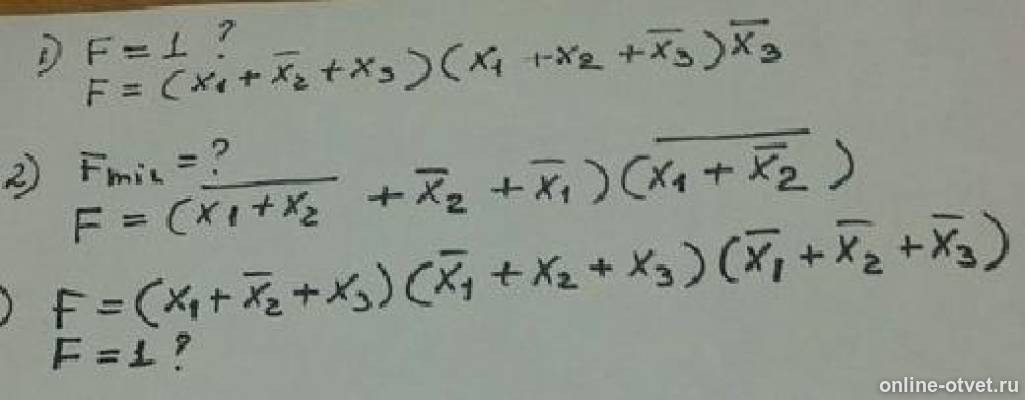 1) F = 1 ?
F = (x₁ + x̅₂ + x₃)(x₁ + x₂ + x̅₃)x̅₃
2) Fmin = ?
F = (x̅₁̅ ̅+̅ ̅x̅₂̅ + x̅₂ + x̅₁)(x̅₁̅ ̅+̅ ̅x̿₂̅)
) F = (x₁ + x̅₂ + x₃)(x̅₁ + x₂ + x₃)(x̅₁ + x̅₂ + x̅₃)
F = 1 ?
online-otvet.ru